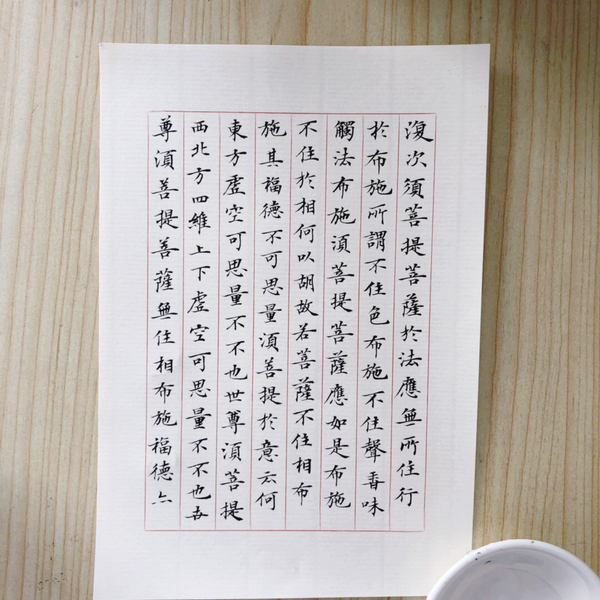 復次須菩提菩薩於法應無所住行
於布施所謂不住色布施不住聲香味
觸法布施須菩提菩薩應如是布施
不住於相何以胡故若菩薩不住相布
施其福德不可思量須菩提於意云何
東方虛空可思量不不也世尊須菩提
西北方四維上下虛空可思量不不也世
尊須菩提菩薩無住相布施福德亦